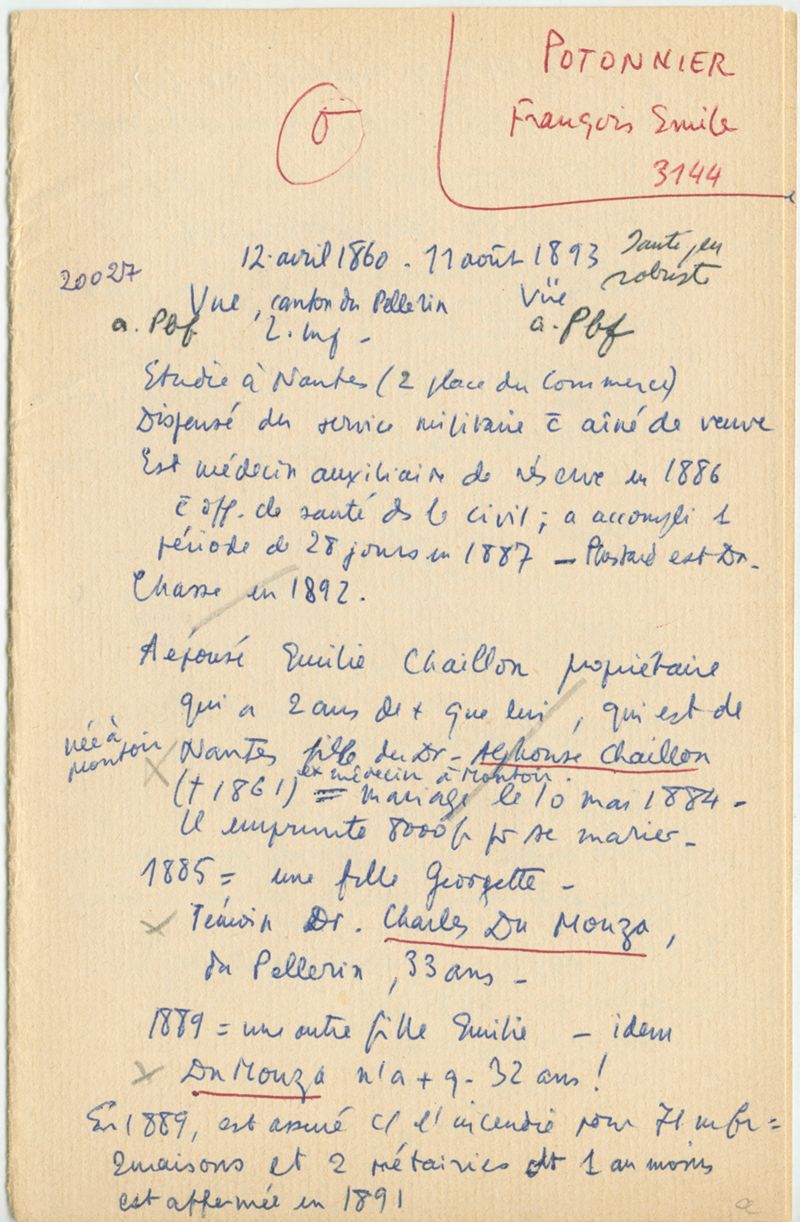 POTONNIER
François Emile
3144
σ
12 avril 1860 - 11 août 1893
Santé peu
robuste
20027
Vue, canton du Pellerin
Vüe
a. Pbf
L. Inf -
a. Pbf
Etudie à Nantes (2 place du Commerce)
Dispensé du service militaire c̄ aîné de veuve
Est médecin auxiliaire de réserve en 1886
c̄ off. de santé ds le civil ; a accompli 1
période de 28 jours en 1887 - Plus tard est Dr.
Chasse en 1892.
A épousé Emilie Chaillon propriétaire
qui a 2 ans de + que lui, qui est de
née à
Montoir
Nantes fille du Dr - Alphonse Chaillon
ex médecin à Montoir.
(+ 1861) = mariage le 10 mai 1884 -
Il emprunte 8000 fr pr se marier -
1885 = une fille Georgette -
Témoin Dr. Charles Du Mouza,
du Pellerin, 33 ans -
1889 = une autre fille Emilie - idem
Du Mouza n'a + q- 32 ans !
En 1889, est assuré c/ l'incendie pour 71 m fr =
2 maisons et 2 métairies dt 1 au moins
est affermée en 1891